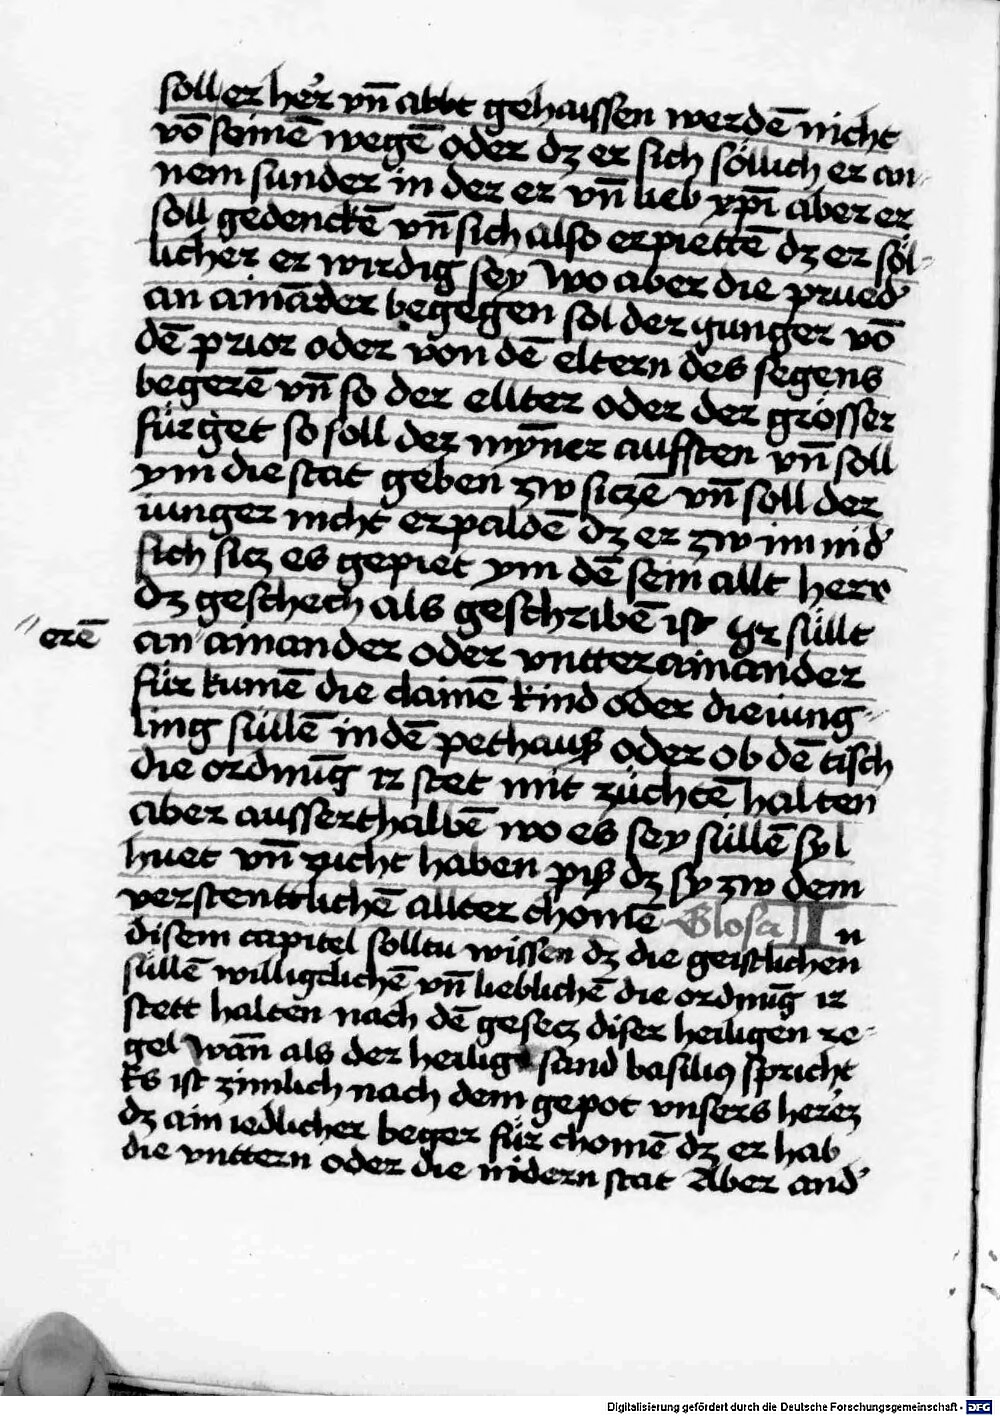 soll er her vn̄ abbt gehaissen werdē nicht
vō seinē wegē oder dz er sich söllich er an
nem sunder in der er vn̄ lieb xp̄i aber er
soll gedenckē vn̄ sich also erpiettē dz er söl
licher er wirdig sey Wo aber die prued'
an ainād'er begegen sol der yunger vō
dē prior oder von dē eltern des segens
begerē vn̄ so der ellter oder der grösser
für get so soll der mȳner auffsten vn̄ soll
ym die stat geben zw siczē vn̄ soll der
iunger nicht erpaldē dz er zw im nid'
sich sicz es gepiet ym dē sein allt herr
dz geschech als geschribē ist Ir süllt
erē
an ainander oder vntter ainander
für kumē die clainē kind oder die iung
ling süllē in dē pethauß oder ob dē tisch
die ordnūg ir stet mit züchtē halten
aber ausserthalbē wo es sey süllē sy
huet vn̄ zucht haben piß dz sy zw dem
verstenttlichē allter chomē Glosa In
disem capitel solltu wissen dz die geistlichen
süllē willigtlichē vn̄ lieblichē die ordnūg ir
stett halten nach dē gesecz diser heiligen re
gel Wān als der heilig sand basiliꝰ spricht
Es ist zimlich nach dem gepot vnsers herē
dz ain iedlicher beger für chomē dz er hab
die vnttern oder die nidern stat Aber and'
Digitalisierung gefördert durch die Deutsche Forschungsgemeinschaft - DFG